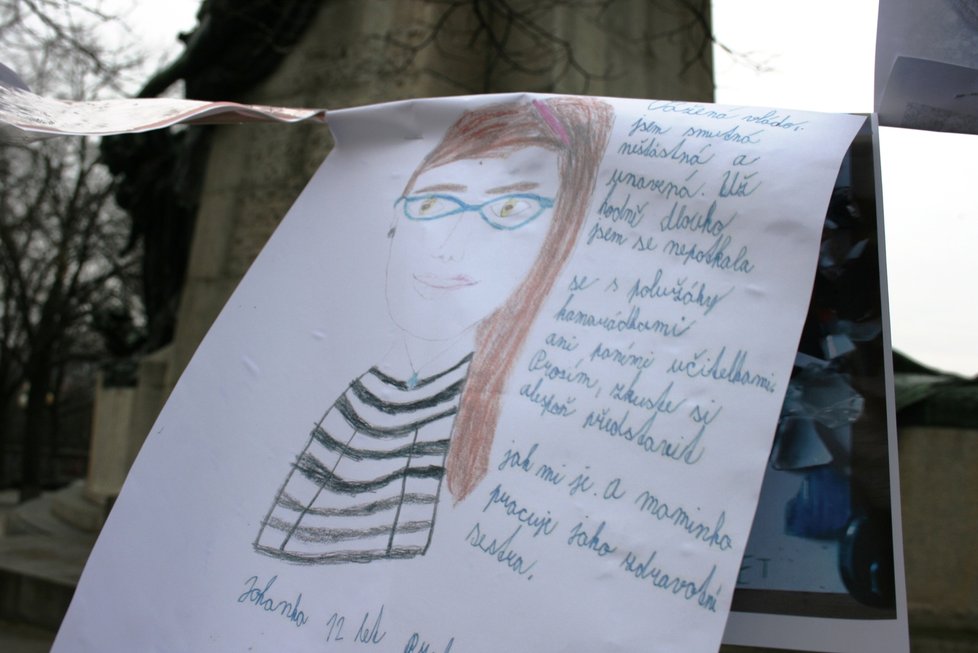 Vážená vládo,
jsem smutná
nešťastná a
unavená. Už
hodně dlouho
jsem se nepotkala
se s polužáky
kamarádkami
ani paními učitelkami.
Prosím, zkuste si
alespoň představit
jak mi je. A maminka
pracuje jako zdravotní
sestra.
Johanka 12 let
ET